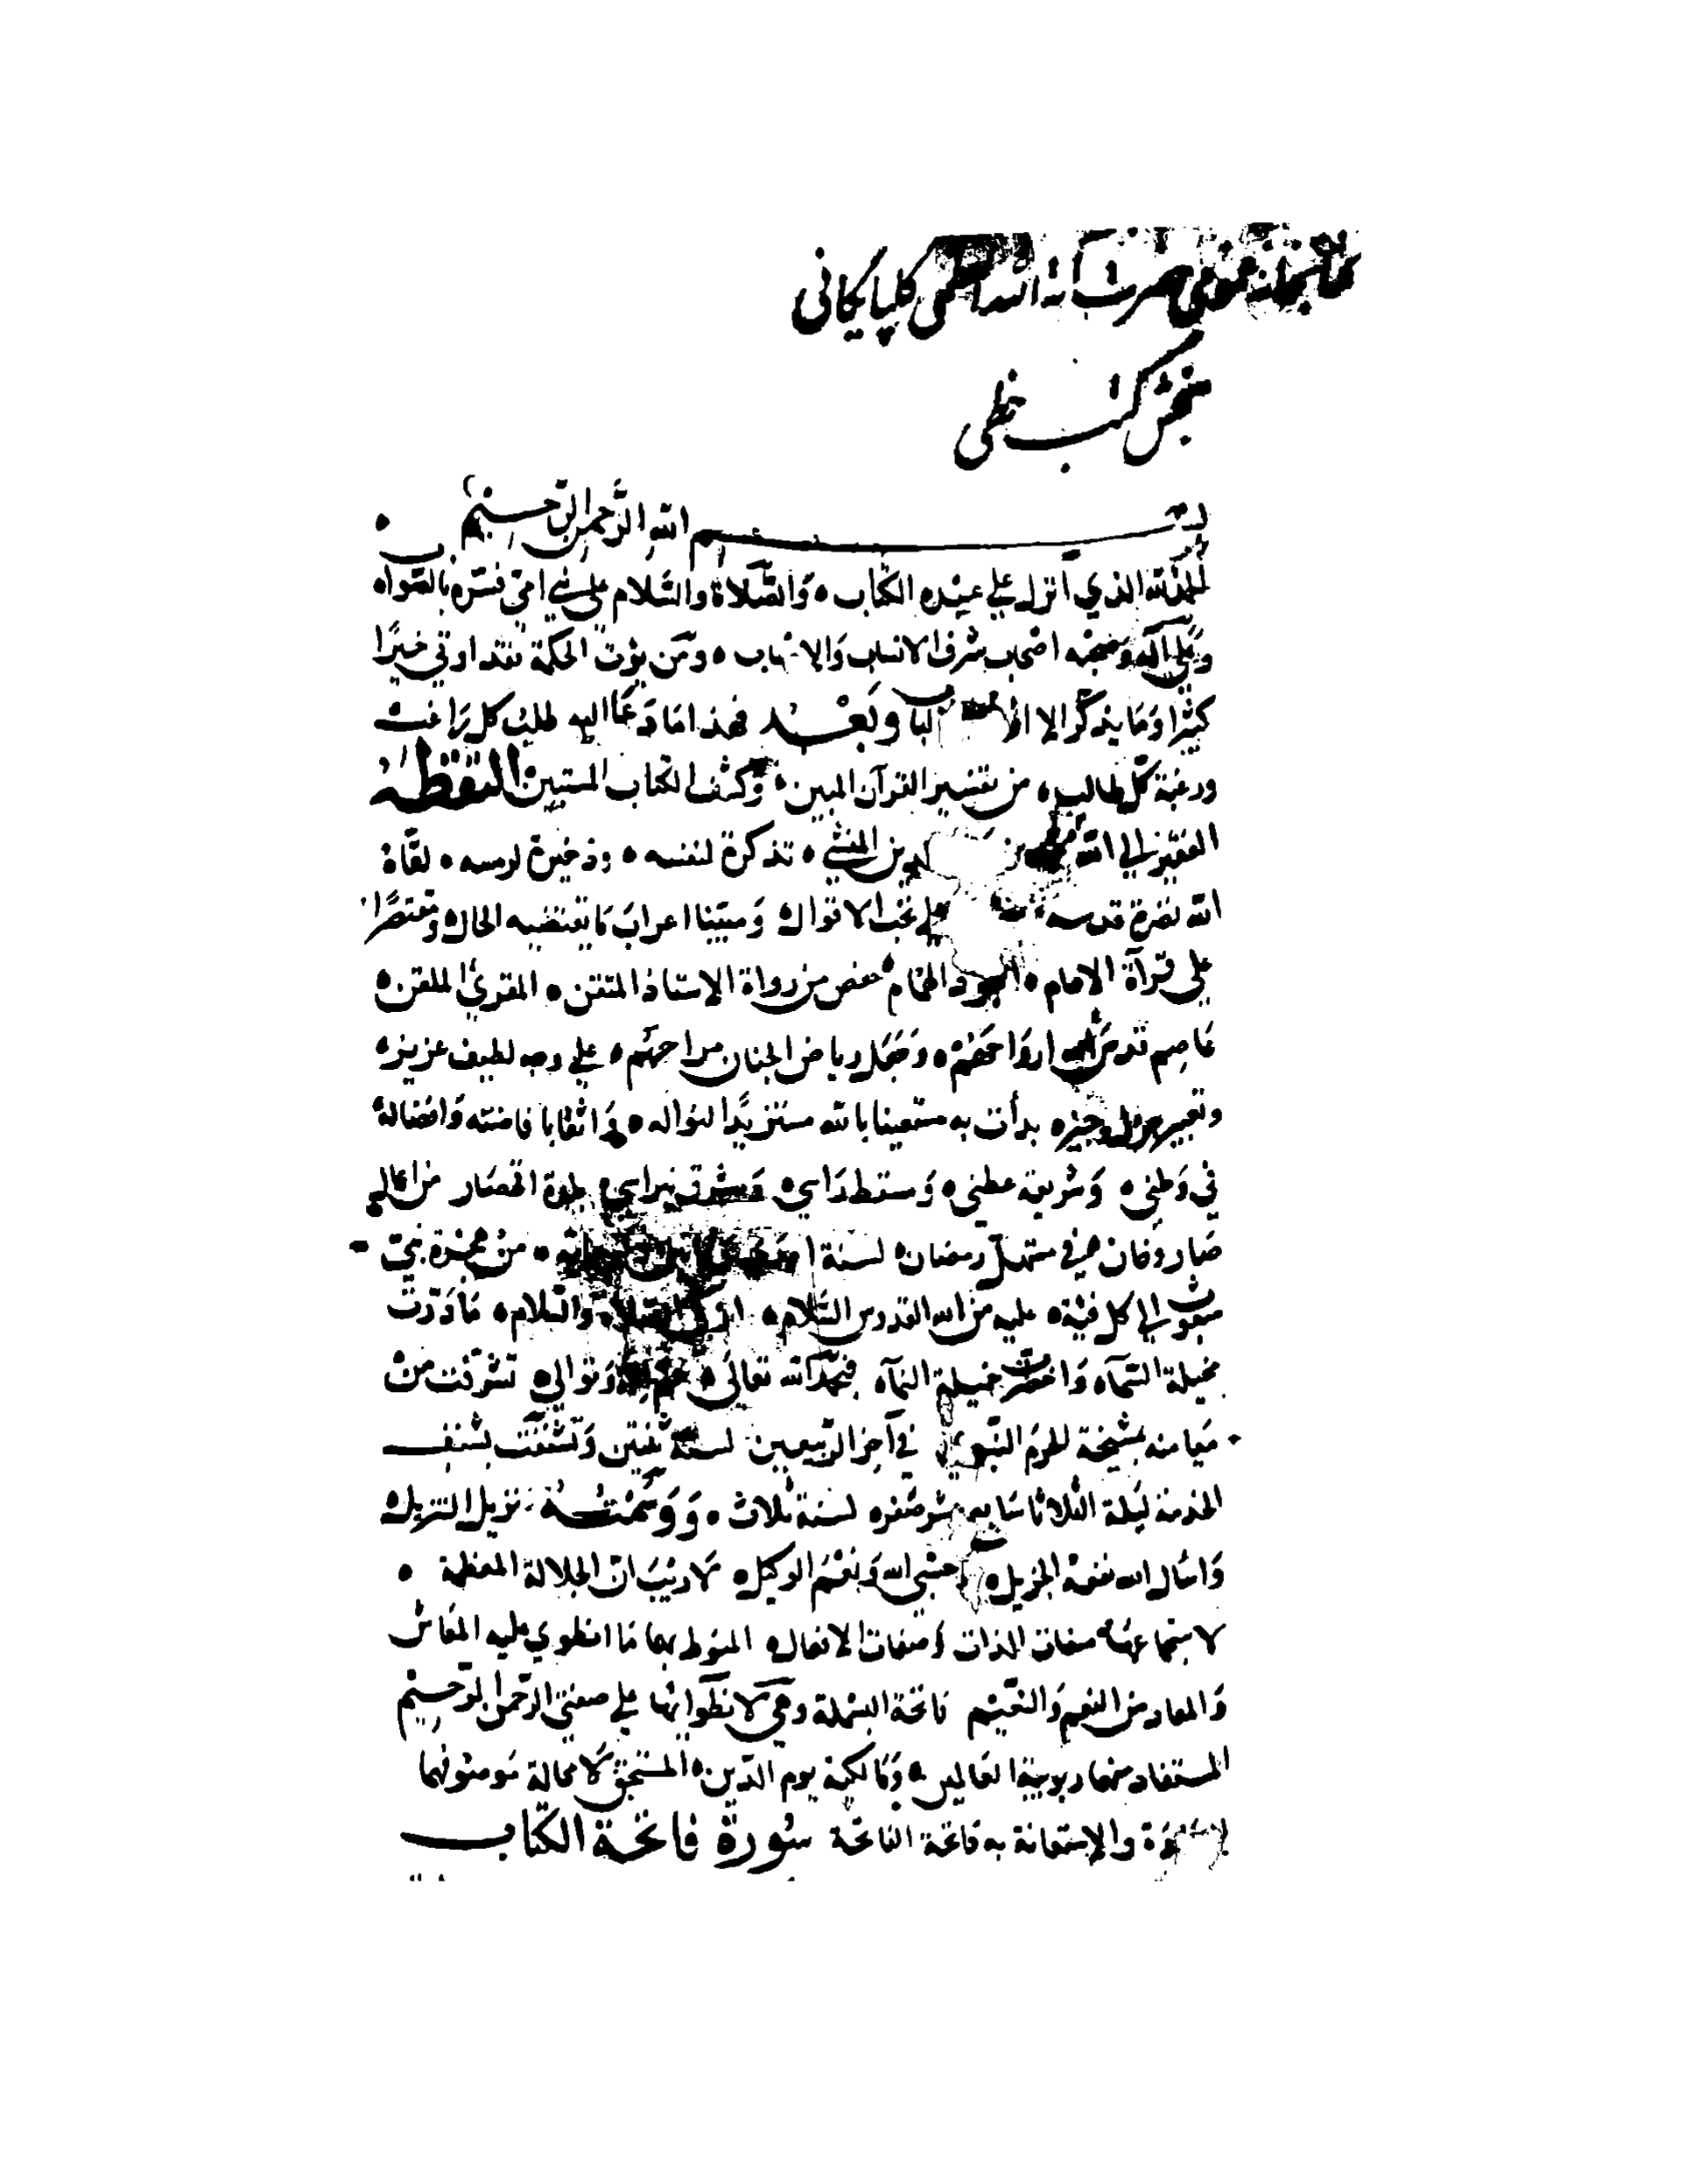 كتابخانه عمومى حضرت آية الله العظمى گلپايگانى
بخش كتب خطى
بسم الله الرحمن الرحيم
الحمد لله الذي انزل على عبده الكتاب والصلاة والسلام على نبي امي فسره بالصواب
وعلى آله وصحبه اصحاب شرف الانساب والا ومن يؤت الحكمة فقد اوتي خيرا
كثيرا وما يذكر الا الباب وبعد فهذا ما دعا اليه طلب كل راغب
ورغبة كل طالب من تفسير القرآن المبين وكشف الكتاب المستبين التقطه
الفقير الى الله بن المنشي تذكرة لنفسه وذخيرة لرمسه لقاه
الله نضرة قدسه على نخب الاقوال ومبينا اعراب ما يقتضيه الحال ومقتصرا
على قرآة الامام الهمام حفص من رواة الاستاذ المتقن المقرئ الملقن
عاصم قدس الله ارواحهم وجعل رياض الجنان مراحهم على وجه لطيف عزيز
وتعبير وجيز بدأت به مستعينا بالله مستزيدا لنواله واثقا بافاضته وافضاله
في وطني وشريف عطني ومسقط راسي ومشرق نبراسي بلدة اقحصار من اعالي
صاروخان في مستهل رمضان لسنة من هجرة نبي
مبعوث الى كل فئة عليه من الله القدوس السلام الصلاة والسلام ما درت
مخيلة السمآء واخضرت خميلة النمآء فبحمد الله تعالى وتوالي تشرفت من
مقامه بمشيخة الحرم النبوي في آخر الربيعين لسنة ثنتين وتشنفت بشنف
الخدمة ليلة الثلاثا سابع عشر صفر لسنة ثلاث ووسمته تنزيل التنزيل
واسال الله نفعه الجزيل حسبي الله ونعم الوكيل لا ريب ان الجلالة المعظمة
لاستجماعها صفات الذات وصفات الافعال المنوط بها ما انطوي عليه المعاش
والمعاد من النعم والنقم فاتحة البسملة وهي لانطوائها على صفتي الرحمن الرحيم
المستفاد منهما ربوبية العالمين ومالكية يوم الدين المستحق لا محالة موصوفهما
والاستعانة به فاتحة الفاتحة سورة فاتحة الكتاب